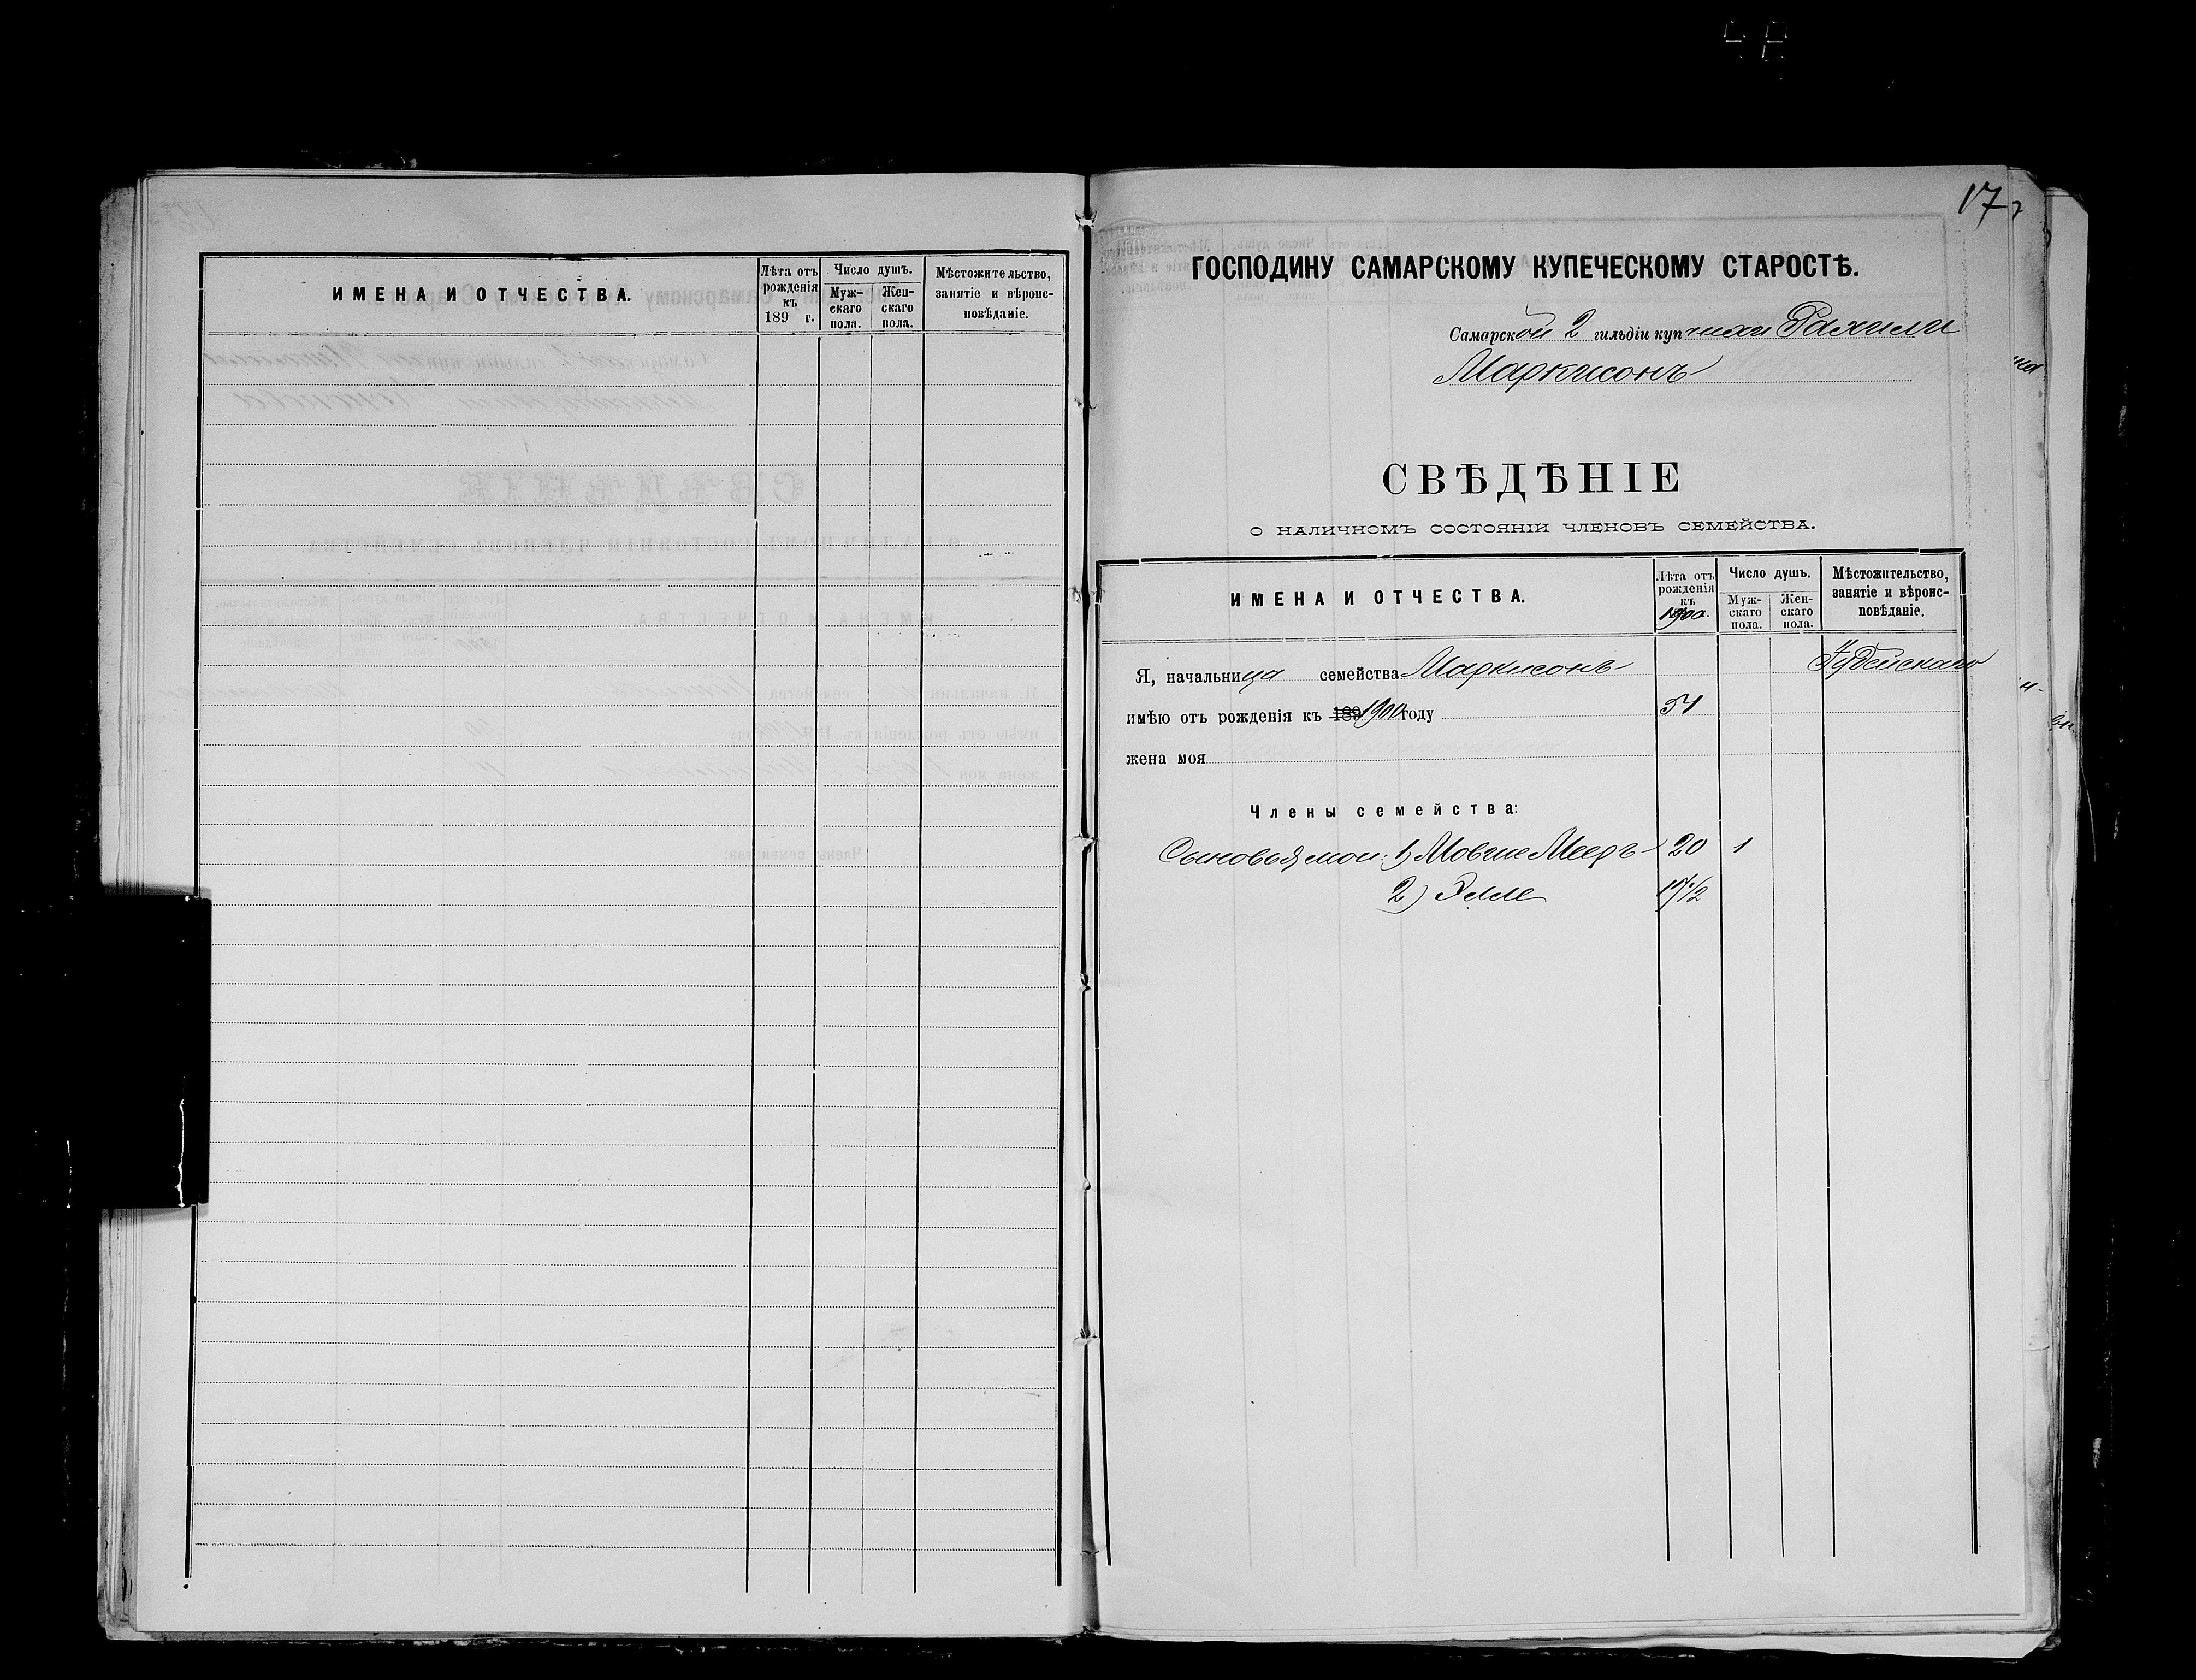 ИМЕНА И ОТЧЕСТВА.
Лѣта отъ рожденія къ 189 г.
Число душъ.
Муж-скаго пола.
Жен-скаго пола.
Мѣстожительство, занятіе и вѣроис-повѣданіе.
17
ГОСПОДИНУ САМАРСКОМУ КУПЕЧЕСКОМУ СТАРОСТѢ.
Самарской 2 гильдіи купчихи Рахили
Маркисонъ
СВѢДѢНІЕ
О НАЛИЧНОМЪ СОСТОЯНІИ ЧЛЕНОВЪ СЕМЕЙСТВА.
ИМЕНА И ОТЧЕСТВА.
Лѣта отъ рожденія къ 1900
Число душъ.
Муж-скаго пола.
Жен-скаго пола.
Мѣстожительство, занятіе и вѣроис-повѣданіе.
Я, начальница семейства Маркисонъ Іудейскаго
имѣю отъ рожденія къ 189 1900 году 51
жена моя
Члены семейства:
Сыновья мои: 1) Мовше Мееръ 20 1
2) Элле